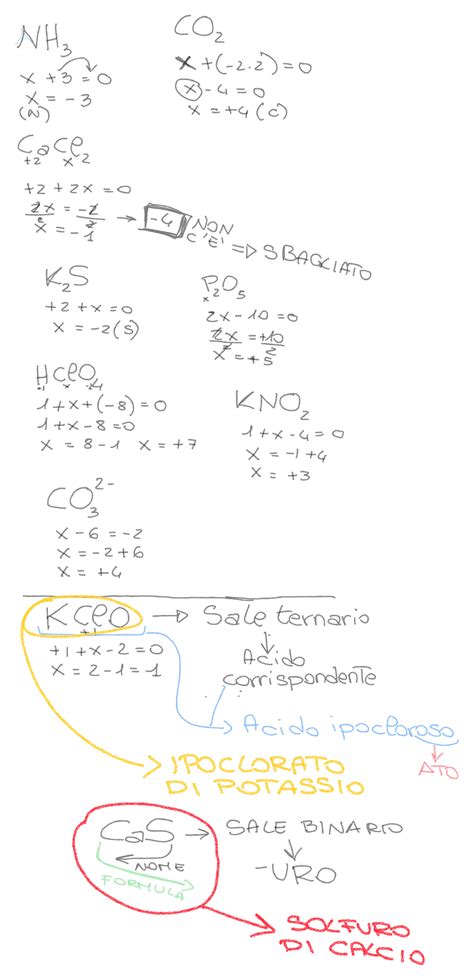 NH3
x + 3 = 0
x = -3
(N)
CO2
x + (-2·2) = 0
x - 4 = 0
x = +4 (C)
CaCl2
+2 x
+2 + 2x = 0
2x/2 = -2/2
x = -1
→ -4 NON C'È! ⇒ SBAGLIATO
K2S
+2 + x = 0
x = -2 (S)
P2O5
x
2x - 10 = 0
2x/2 = +10/2
x = +5
HClO4
1 + x + (-8) = 0
1 + x - 8 = 0
x = 8 - 1 x = +7
KNO2
1 + x - 4 = 0
x = -1 + 4
x = +3
CO3 2-
x - 6 = -2
x = -2 + 6
x = +4
KClO → Sale ternario
+1
+1 + x - 2 = 0
x = 2 - 1 = 1
Acido
corrispondente
Acido ipocloroso
ATO
IPOCLORATO
DI POTASSIO
CaS → SALE BINARIO
NOME
FORMULA
-URO
SOLFURO
DI CALCIO